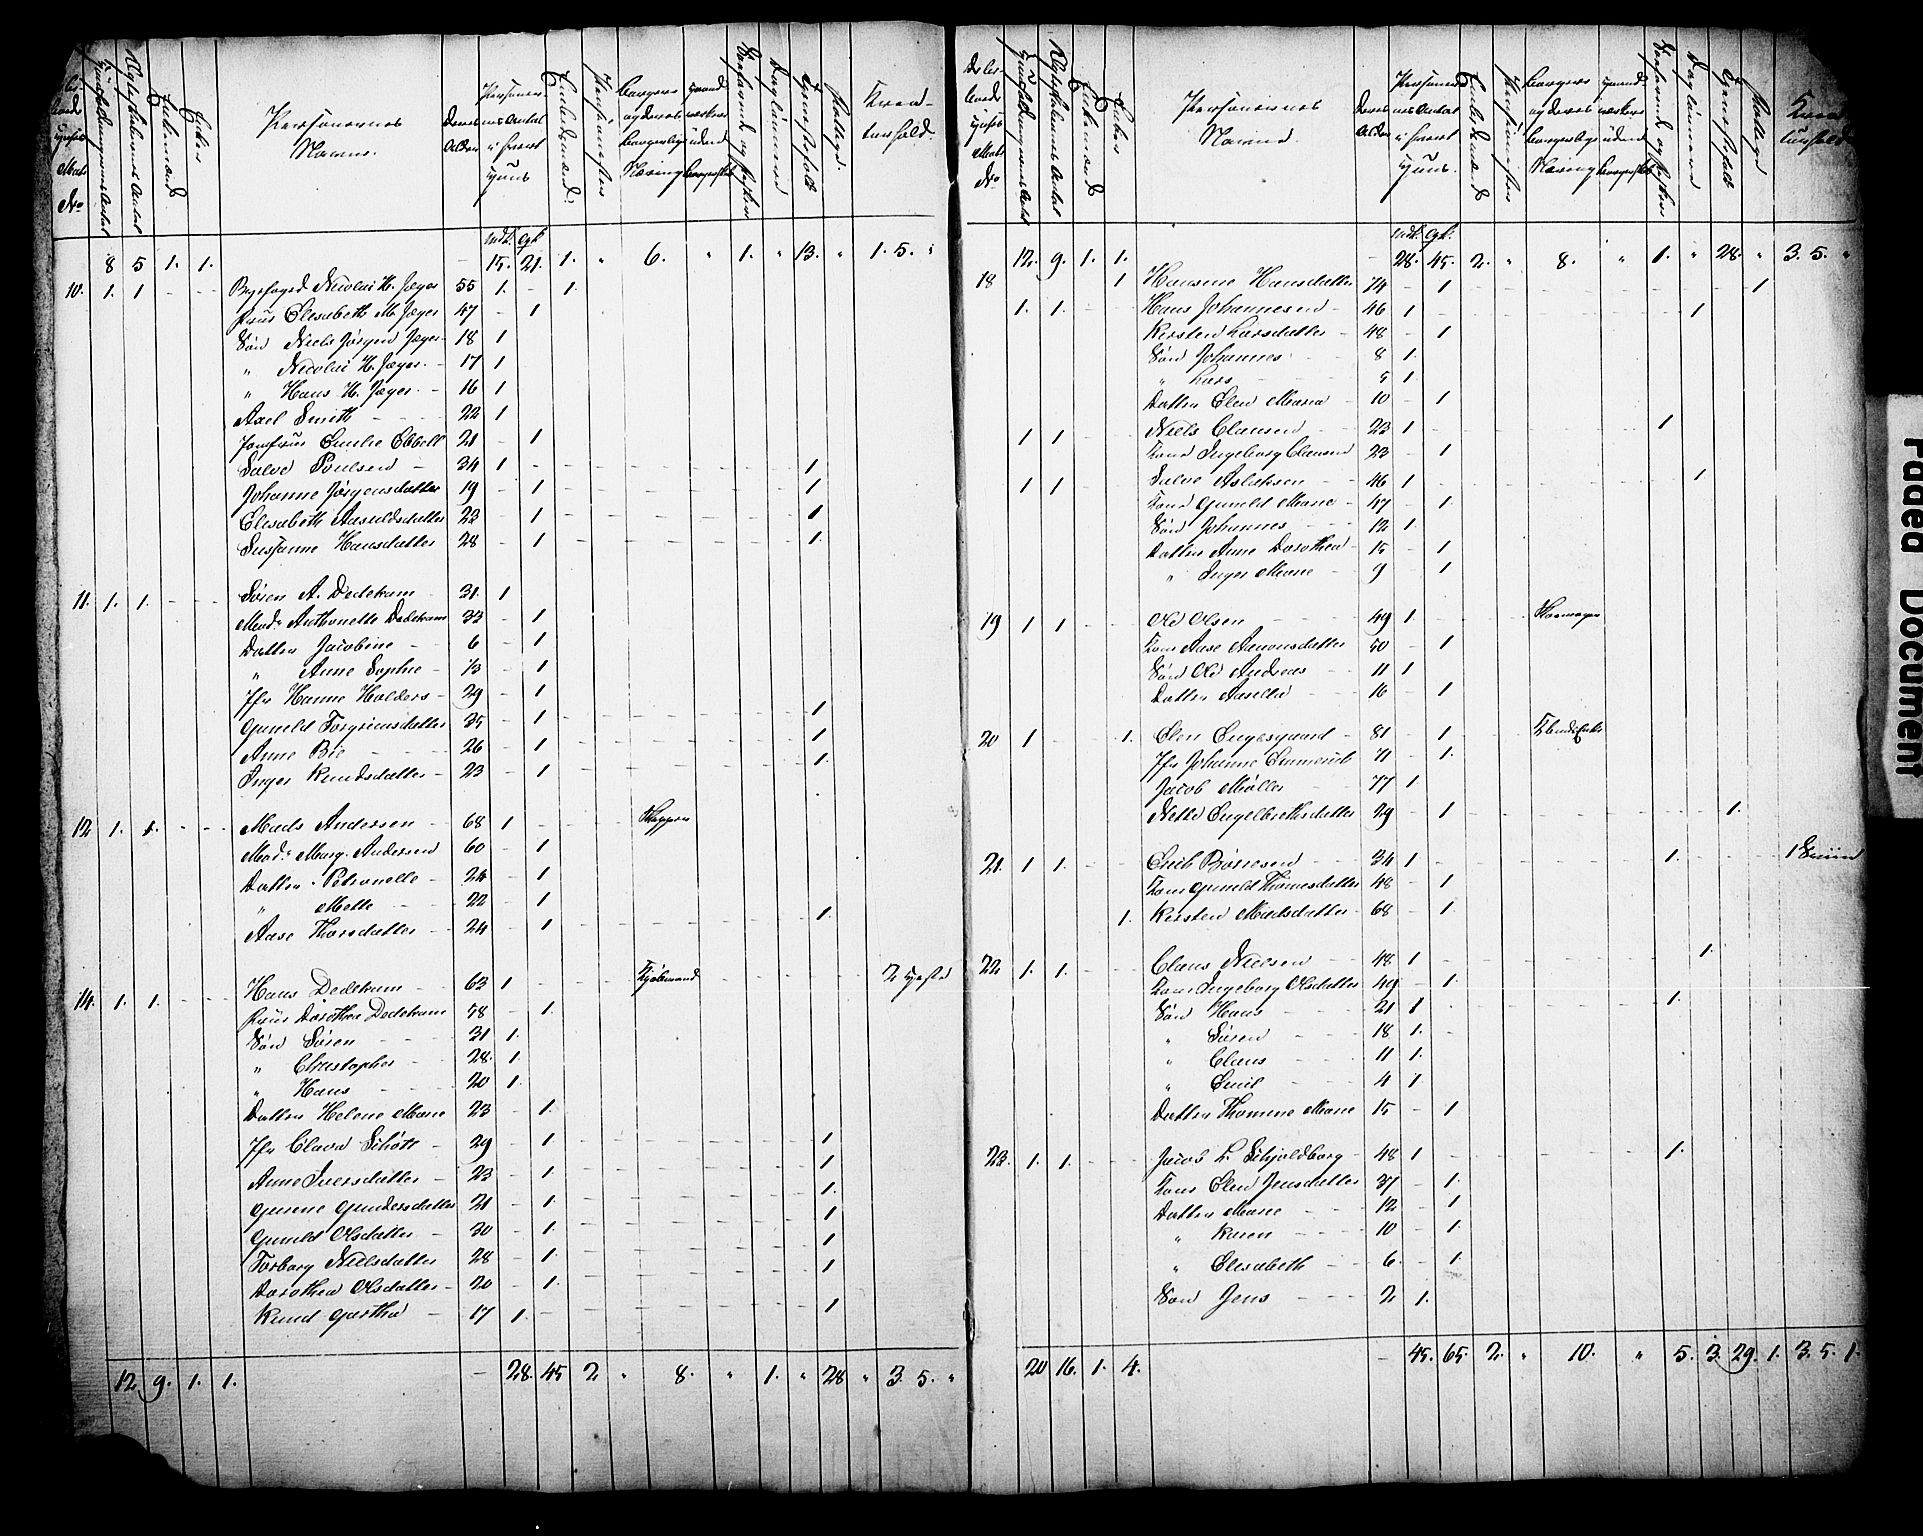 Personernes Navne.
Deres Alder
Enkemænd
Enker
Embedsmænd
Pensionister
Daglønnere
Tjenestefolk
8 5 1. 1. 15. 21. 1. " 6. " 1. " 13. " 1. 5. "
10. 1. 1 Nicolai H. Jæger 55 1. 1.
Elisabeth M. Jæger 47 1
Søn Niels Jørgen Jæger 18 1
" Nicolai H. Jæger 17 1
" Hans H. Jæger 16 1
Axel Smith 22 1
Jomfrue Emilie Ebbell 21 1
Salve Poulsen 34 1 1
Johanne Jørgensdatter 19 1 1
Elisabeth Aasuldsdatter 23 1 1
Susanne Hansdatter 28 1 1
11. 1. 1. Søren A. Dedekam 31. 1
Mad. Anthonette Dedekam 33 1
Datter Jacobine 6 1
" Anne Sophie 1/3 1
Jfr Hanne Holders 29 1
Guneld Torgrimsdatter 35 1 1
Anne Boe 26 1 1
Inger Knudsdatter 23 1 1.
12 1. 1. Mads Andersen 68 1 Skipper
Mad. Marg. Andersen 60 1
Datter Petronelle 24 1
" Mette 22 1
Aase Thorsdatter 24 1 1
14. 1. 1. Hans Dedekam 63 1 Kjøbmand 2 Heste
Frue Dorothea Dedekam 58 1.
Søn Søren 31 1.
" Christopher 28. 1.
" Hans 20 1.
Datter Helene Marie 23 1.
Jfr Clara Schøtt 29 1. 1
Anne Iversdatter 23 1. 1
Gurine Gundersdatter 21 1. 1.
Guneld Olsdatter 30 1. 1
Torborg Nielsdatter 28 1. 1
Dorothea Olsdatter 20 1. 1
Knud 17 1. 1
12 9. 1. 1. 28. 45 2 " 8. " 1. " 28 " 3. 5. "
Personernes Navne
Deres Alder
Enkemænd
Enker
Embedsmænd
Pensionister
Daglønnere
Tjenestefolk
12. 9. 1. 1. 28. 45. 2. " 8. " 1. " 28. " 3. 5. "
18 1 Hansine Hansdatter 74 1 1
1. 1. Hans Johannesen 46 1 1
Kirsten Larsdatter 48 1
Søn Johannes 8 1.
" Lars 5 1.
Datter Elen Maria 10 1
1 1 Niels Clausen 23 1 1
Kone Ingeborg Clausen 23 1
1 1 Salve Aslaksen 46 1 1
Kone Guneld Marie 47 1
Søn Johannes 12 1.
Datter Anne Dorothea 15 1
" Inger Marie 9 1
19 1 1 Ole Olsen 49 1
Kone Aase Aanonsdatter 50 1
Søn Ole Andreas 11 1
Datter 16 1
20 1 1. Elen Engesgaard 81 1
Jfr Johanne 71 1.
Jacob Møller 77 1
Mette Engelbrethsdatter 29 1 1.
21. 1 1. Erik Børresen 34 1 1. 1 Sviin
Kone Guneld Thomesdatter 48 1
1. Kirsten Madsdatter 68 1
22 1. 1. Claus Nielsen 48 1 1
Kone Ingeborg Olsdatter 49 1.
Søn Hans 21 1 1.
" Søren 18 1.
" Claus 11 1.
" Emil 4 1
Datter Thomine Marie 15 1
23. 1. 1. Jacob L. Schjoldborg 48 1 1.
Kone Elen Jensdatter 37 1.
Datter Marie 12 1
" Karen 10 1
" Elisabeth 6 1.
Søn Jens 2 1.
20 16. 1. 4. 45. 65. 2. " 10. " 5. 3. 29. 1. 3. 5. 1.
Faded Document